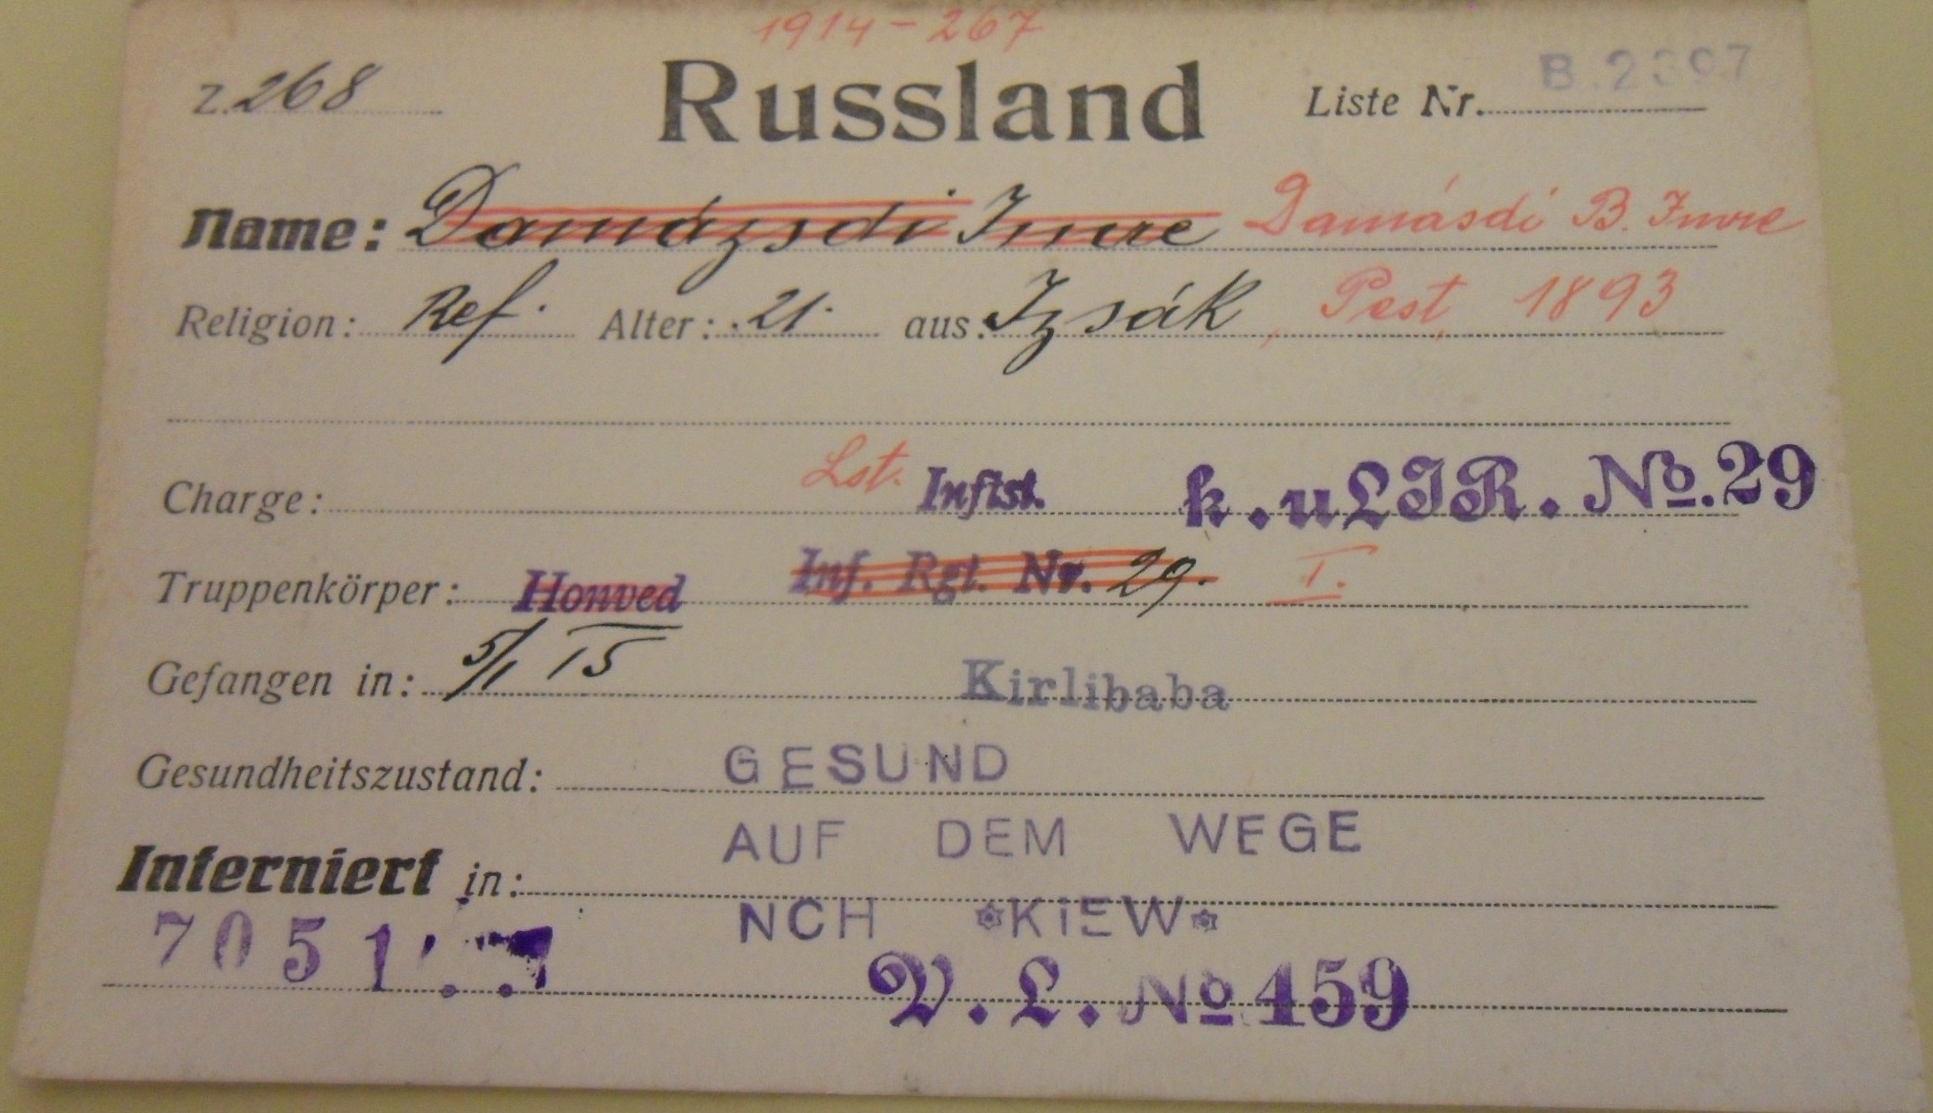 1914 - 267
Z. 268 Russland Liste Nr. B.2397
Name: Damázsdi Imre Damásdi B. Imre
Religion: Ref. Alter: 21. aus: Izsák, Pest, 1893
Charge: Lst. Infist. k.uLIR. No.29
Truppenkörper: Honved Inf. Rgt. Nr. 29. I.
Gefangen in: 5/1 15 Kirlibaba
Gesundheitszustand: GESUND
AUF DEM WEGE
Interniert in:
NCH *KiEW*
7051
V. L. No 459